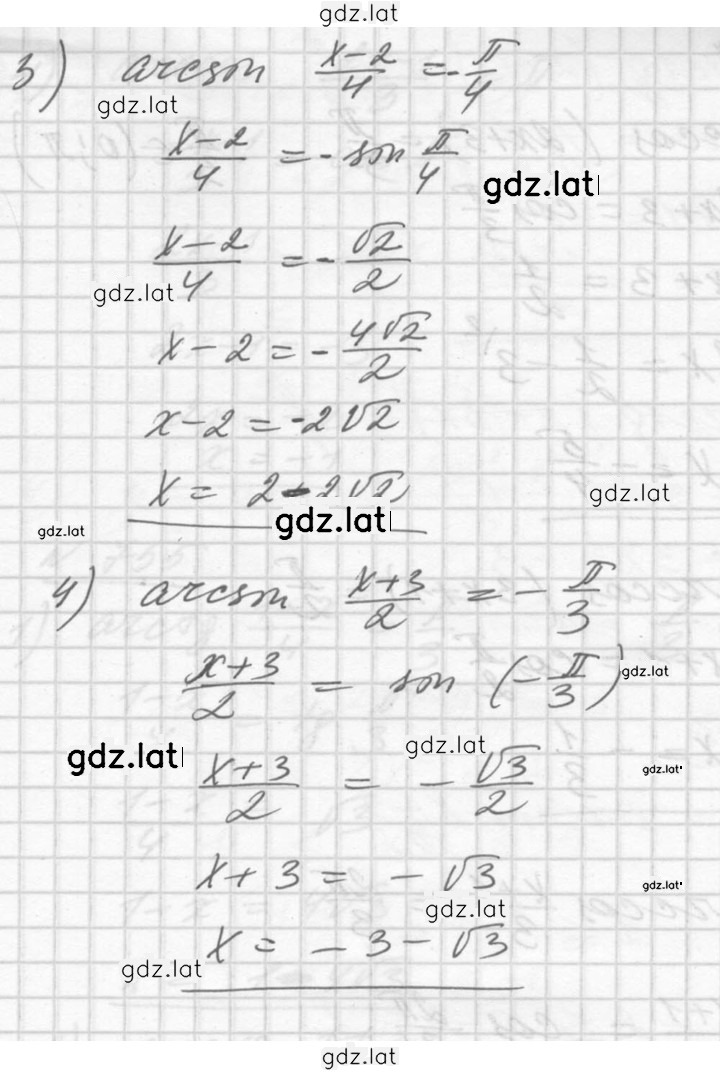 gdz.lat
3) arcsin (x-2)/4 = -π/4
gdz.lat
(x-2)/4 = - sin π/4
gdz.lat
(x-2)/4 = - √2/2
gdz.lat
x-2 = - 4√2/2
x-2 = -2√2
x = 2-2√2
gdz.lat
gdz.lat
gdz.lat
4) arcsin (x+3)/2 = - π/3
(x+3)/2 = sin (-π/3)
gdz.lat
gdz.lat
gdz.lat
(x+3)/2 = - √3/2
gdz.lat
x+3 = - √3
gdz.lat
gdz.lat
x = -3-√3
gdz.lat
gdz.lat